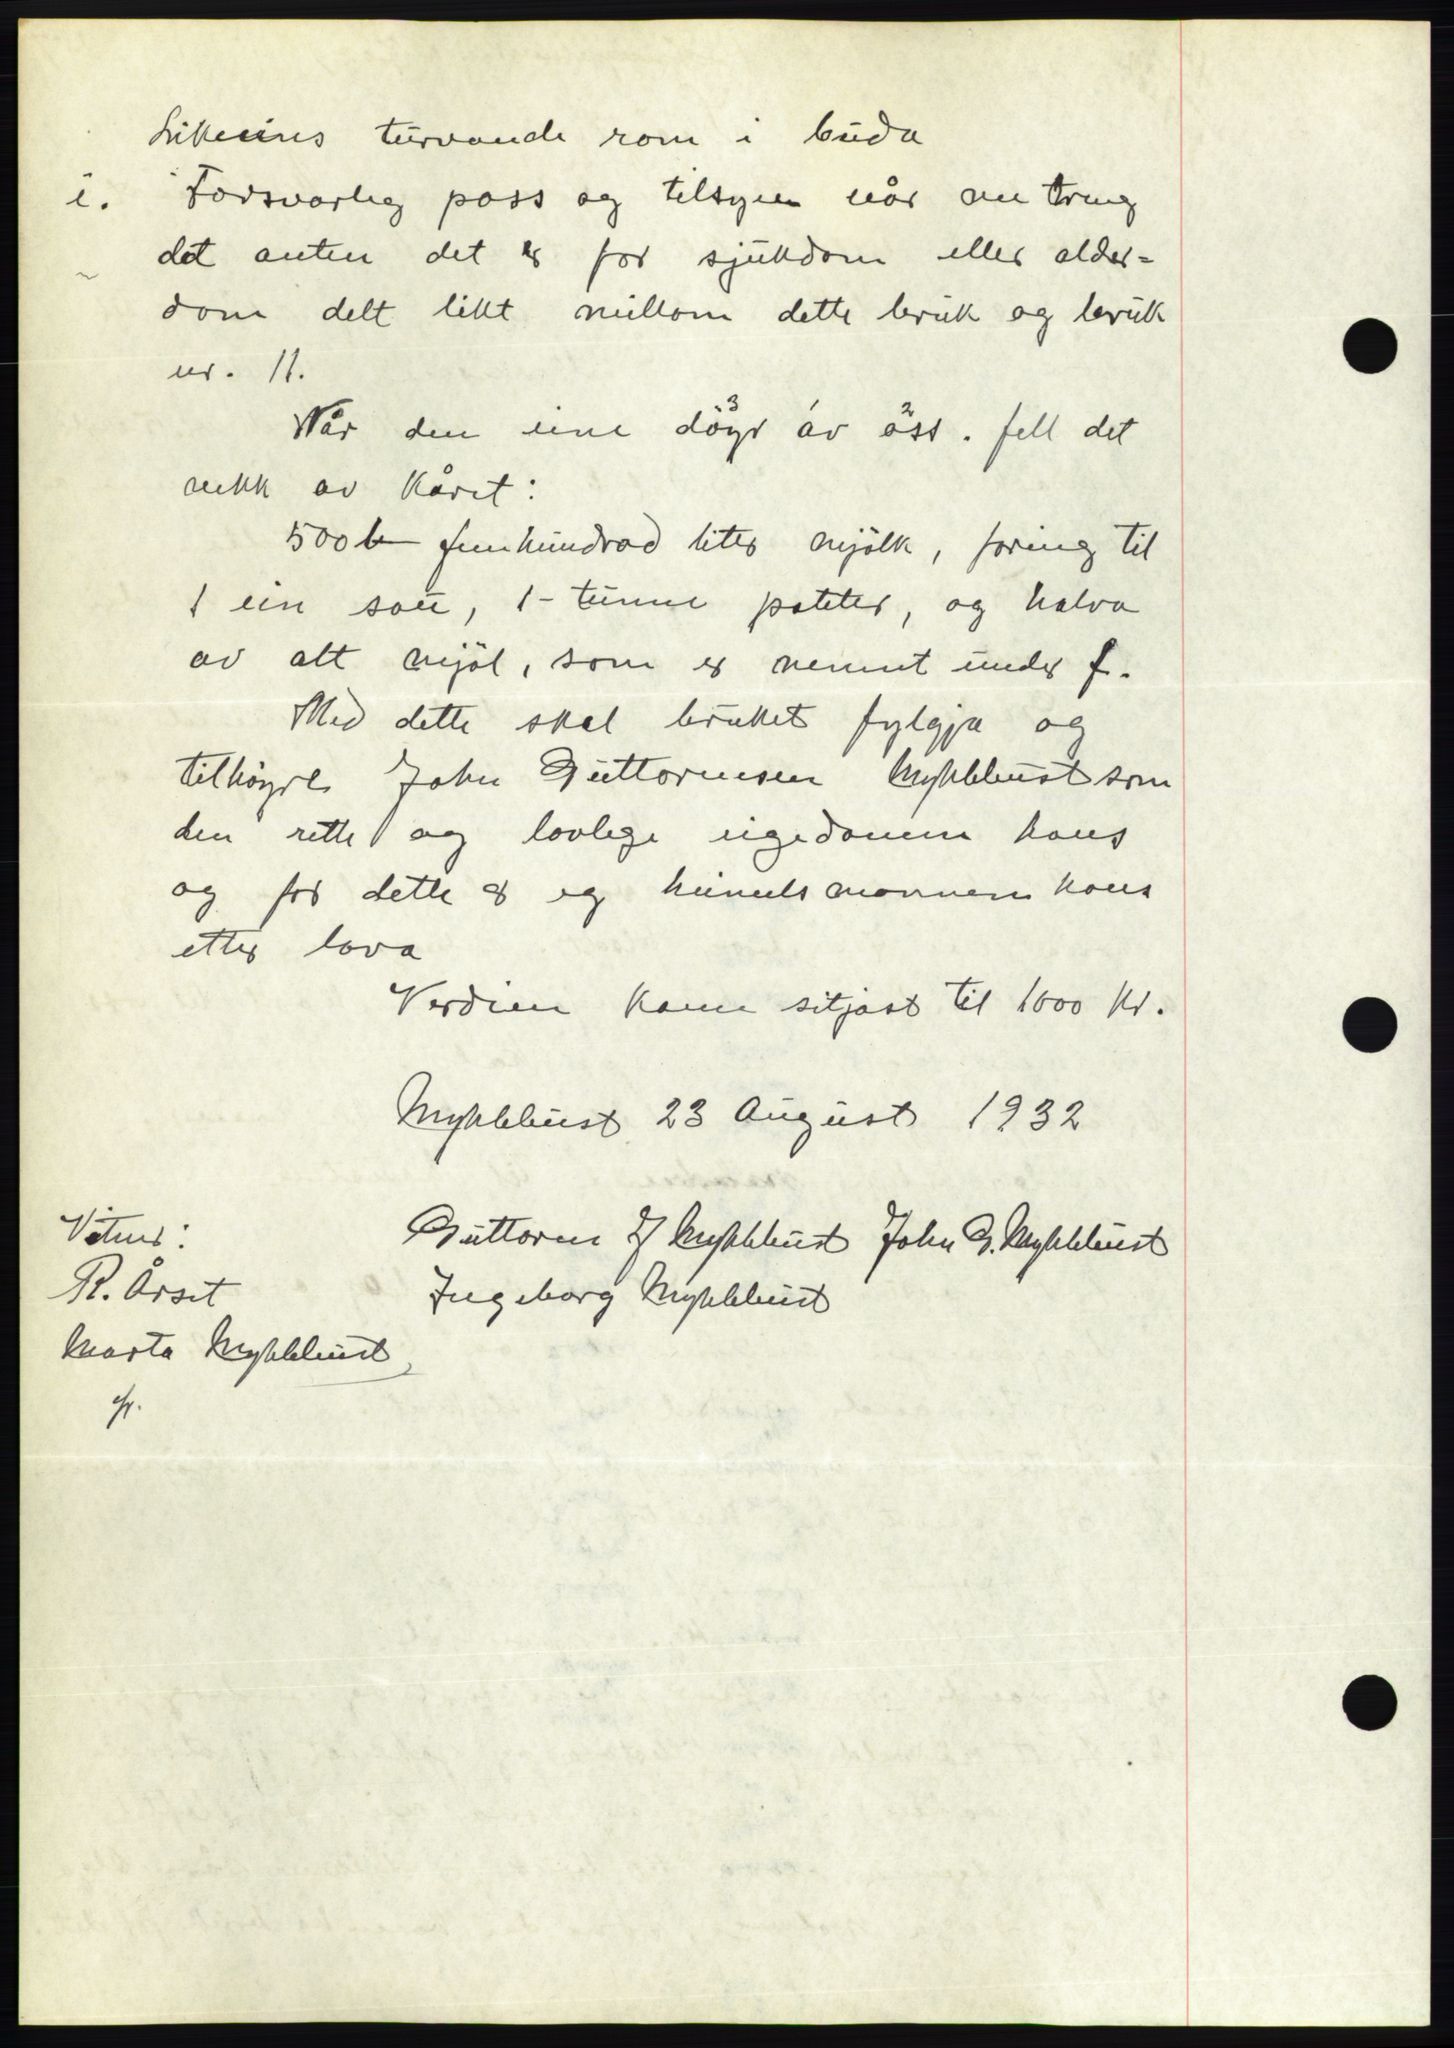 Likeeins turvande rom i buda
i. Forsvarleg pass og tilsyn når me treng
det anten det er for sjukdom eller alder-
dom delt likt millom dette bruk og bruk
nr. 11.
Når den eine döyr 3 av 2 oss. fell det
vekk av kåret:
500 l femhundrad liter mjölk, foring til
1 ein sau, 1- tunne poteter, og halva
av alt mjöl, som er nemnt under f.
Med dette skal bruket fylgja og
tilhöyre John Guttormsen Myklebust som
den rette og lovlege eigedomm hans
og for dette er eg heimelsmannen hans
etter lova
Verdien kann setjast til 1600 kr.
Myklebust 23 August 1932
Vitner: Guttorm J Myklebust John G. Myklebust
R. Årset Ingeborg Myklebust
Marta Myklebust